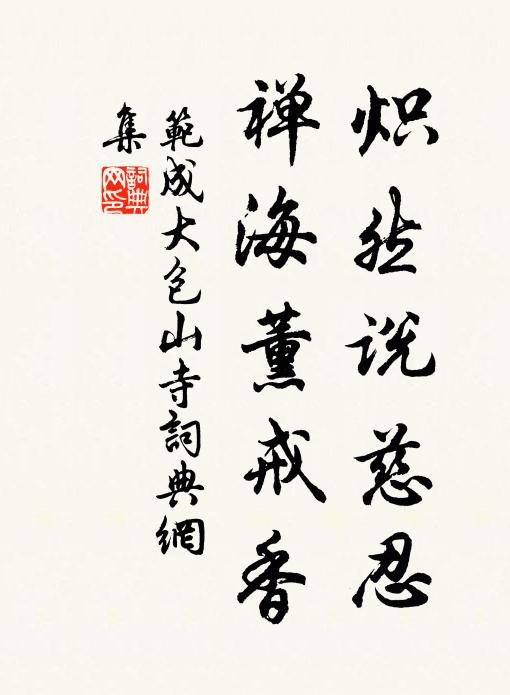 炽然说慈忍
禅海薰戒香
範成大包山寺詞典網
集
詞典网印